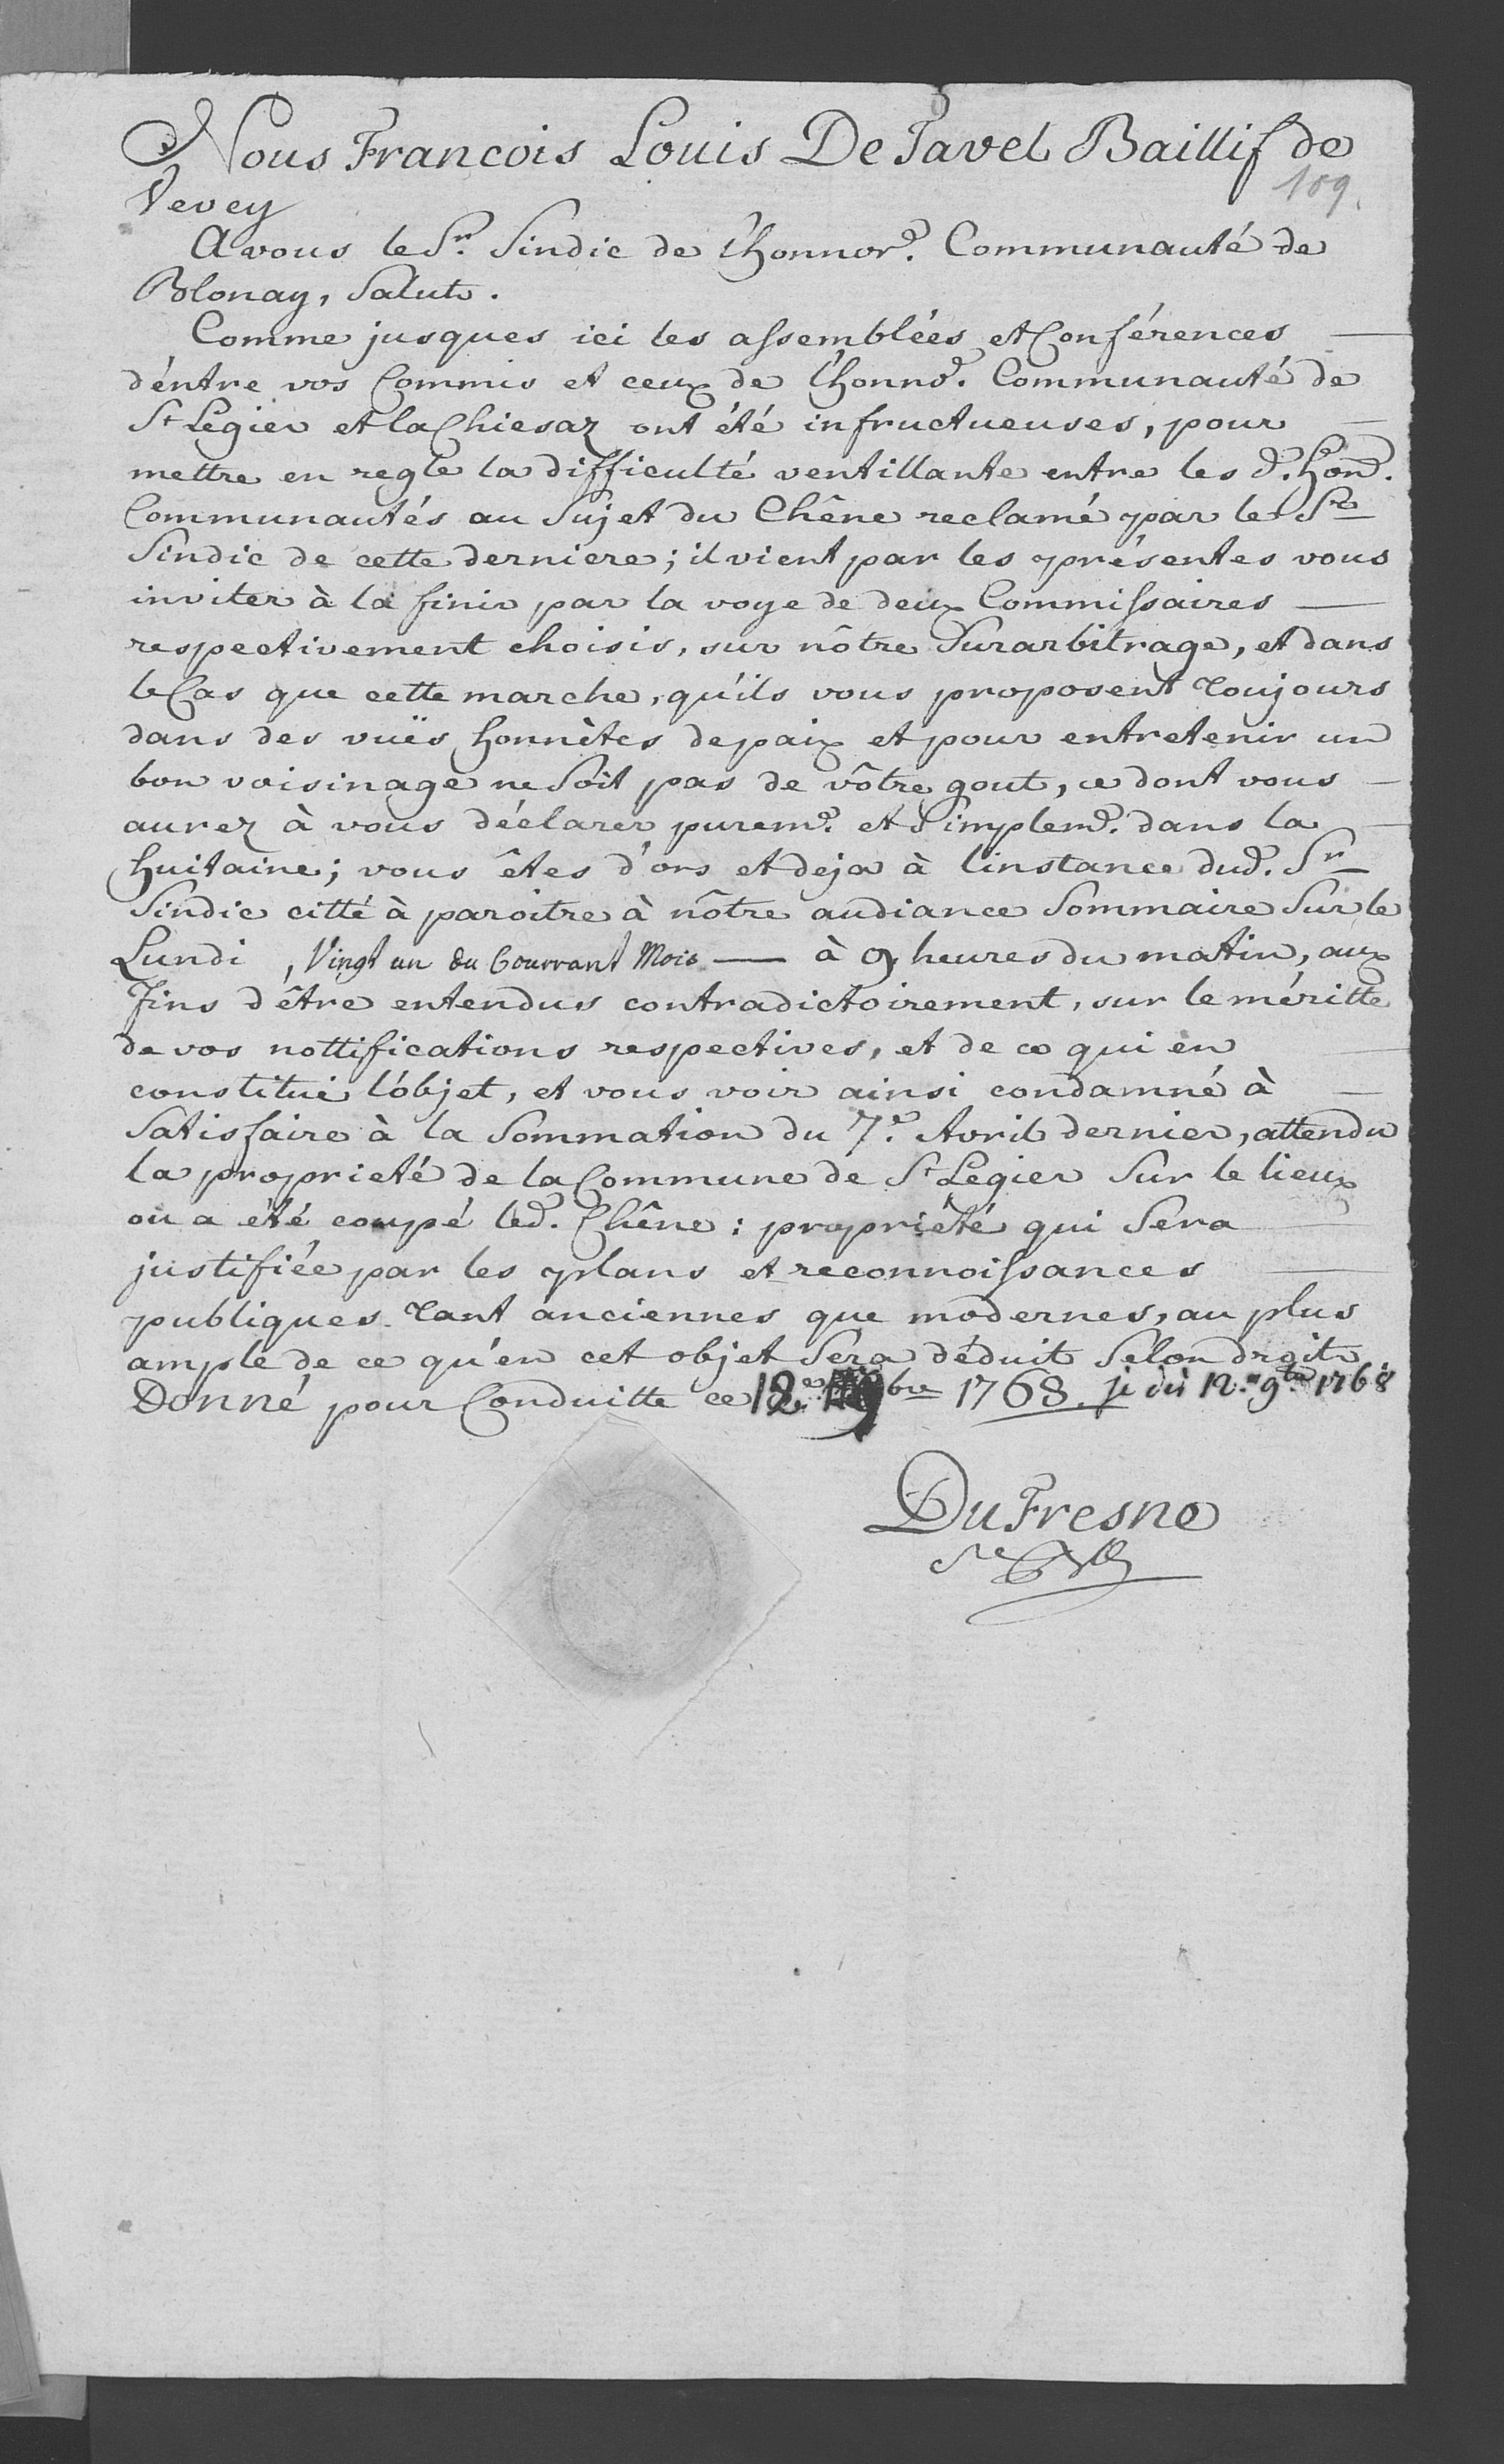 Nous Francois Louis De Tavel Baillif de
109.
Vevey
A vous le Sr. Sindic de l'honnor.e Communauté de
Blonay, Salut.
Comme jusques ici les assemblées et Conférences
d'entre vos Commis et ceux de l'honno.e Communauté de
St Legier et la Chiesaz ont été infructueuses, pour
mettre en regle la difficulté ventillante entre les d.es hon.es
Communautés au Sujet du Chêne reclamé par le Sr
Sindic de cette derniere; il vient par les présentes vous
inviter à la finir par la voye de deux Commissaires
respectivement choisis, sur nôtre Surarbitrage, et dans
le Cas que cette marche, qu'ils vous proposent toujours
dans des vuës honnètes de paix et pour entretenir un
bon voisinage ne Soit pas de vôtre gout, ce dont vous
aurez à vous déclarer purem.t et Simplem.t dans la
huitaine; vous êtes d'ors et deja à l'instance dud. Sr
Sindic citté à paroitre à nôtre audiance Sommaire Sur le
Lundi, Vingt un du Courrant Mois — à 9 heures du matin, aux
Fins d'être entendus contradictoirement, sur le méritte
de vos nottifications respectives, et de ce qui en
constitue l'objet, et vous voir ainsi condamné à
Satisfaire à la Sommation du 7.e Avril dernier, attendu
la proprieté de la Commune de St Legier Sur le lieux
ou a été coupé led. Chêne: propriété qui Sera
justifiée par les plans et reconnoissances
publiques tant anciennes que modernes, au plus
ample de ce qu'en cet objet Sera déduit Selon droit
Donné pour Conduitte ce 12.e 9bre 1768. je dis 12.e 9bre 1768
DuFresne